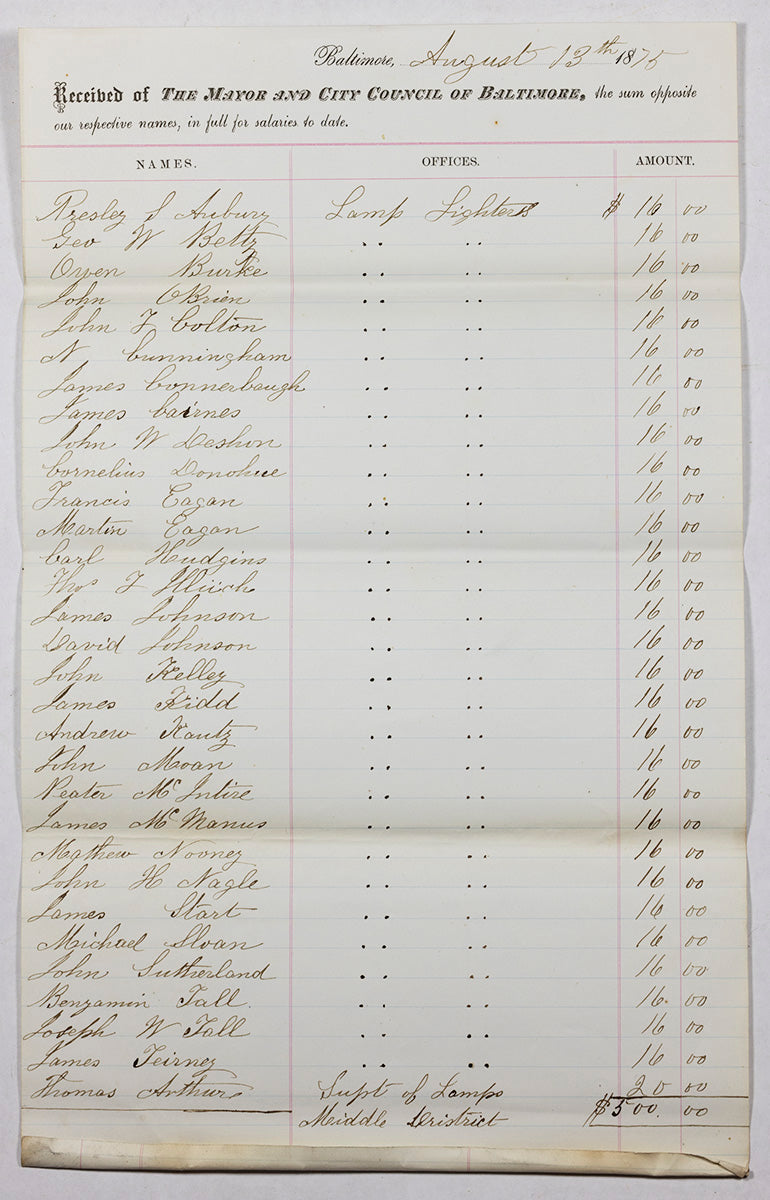 Baltimore, August 13th 1875
Received of THE MAYOR AND CITY COUNCIL OF BALTIMORE, the sum opposite
our respective names, in full for salaries to date.
NAMES. OFFICES. AMOUNT.
Presley S Aubury Lamp Lighters $ 16 00
Geo W Beltz " " 16 00
Owen Burke " " 16 00
John OBrien " " 16 00
John T Colton " " 16 00
N Cunningham " " 16 00
James Connerbaugh " " 16 00
James Cairnes " " 16 00
John W Deshon " " 16 00
Cornelius Donohue " " 16 00
Francis Eagan " " 16 00
Martin Eagan " " 16 00
Carl Hudgins " " 16 00
Thos T " " 16 00
James Johnson " " 16 00
David Johnson " " 16 00
John Kelley " " 16 00
James Kidd " " 16 00
Andrew Kautz " " 16 00
John Moan " " 16 00
Peater McIntire " " 16 00
James McManus " " 16 00
Mathew Nooney " " 16 00
John H Nagle " " 16 00
James Start " " 16 00
Michael Sloan " " 16 00
John Sutherland " " 16 00
Benjamin Tall " " 16 00
Joseph W Tall " " 16 00
James Teirney " " 16 00
Thomas Arthur Supt of Lamps 20 00
Middle District $500. 00